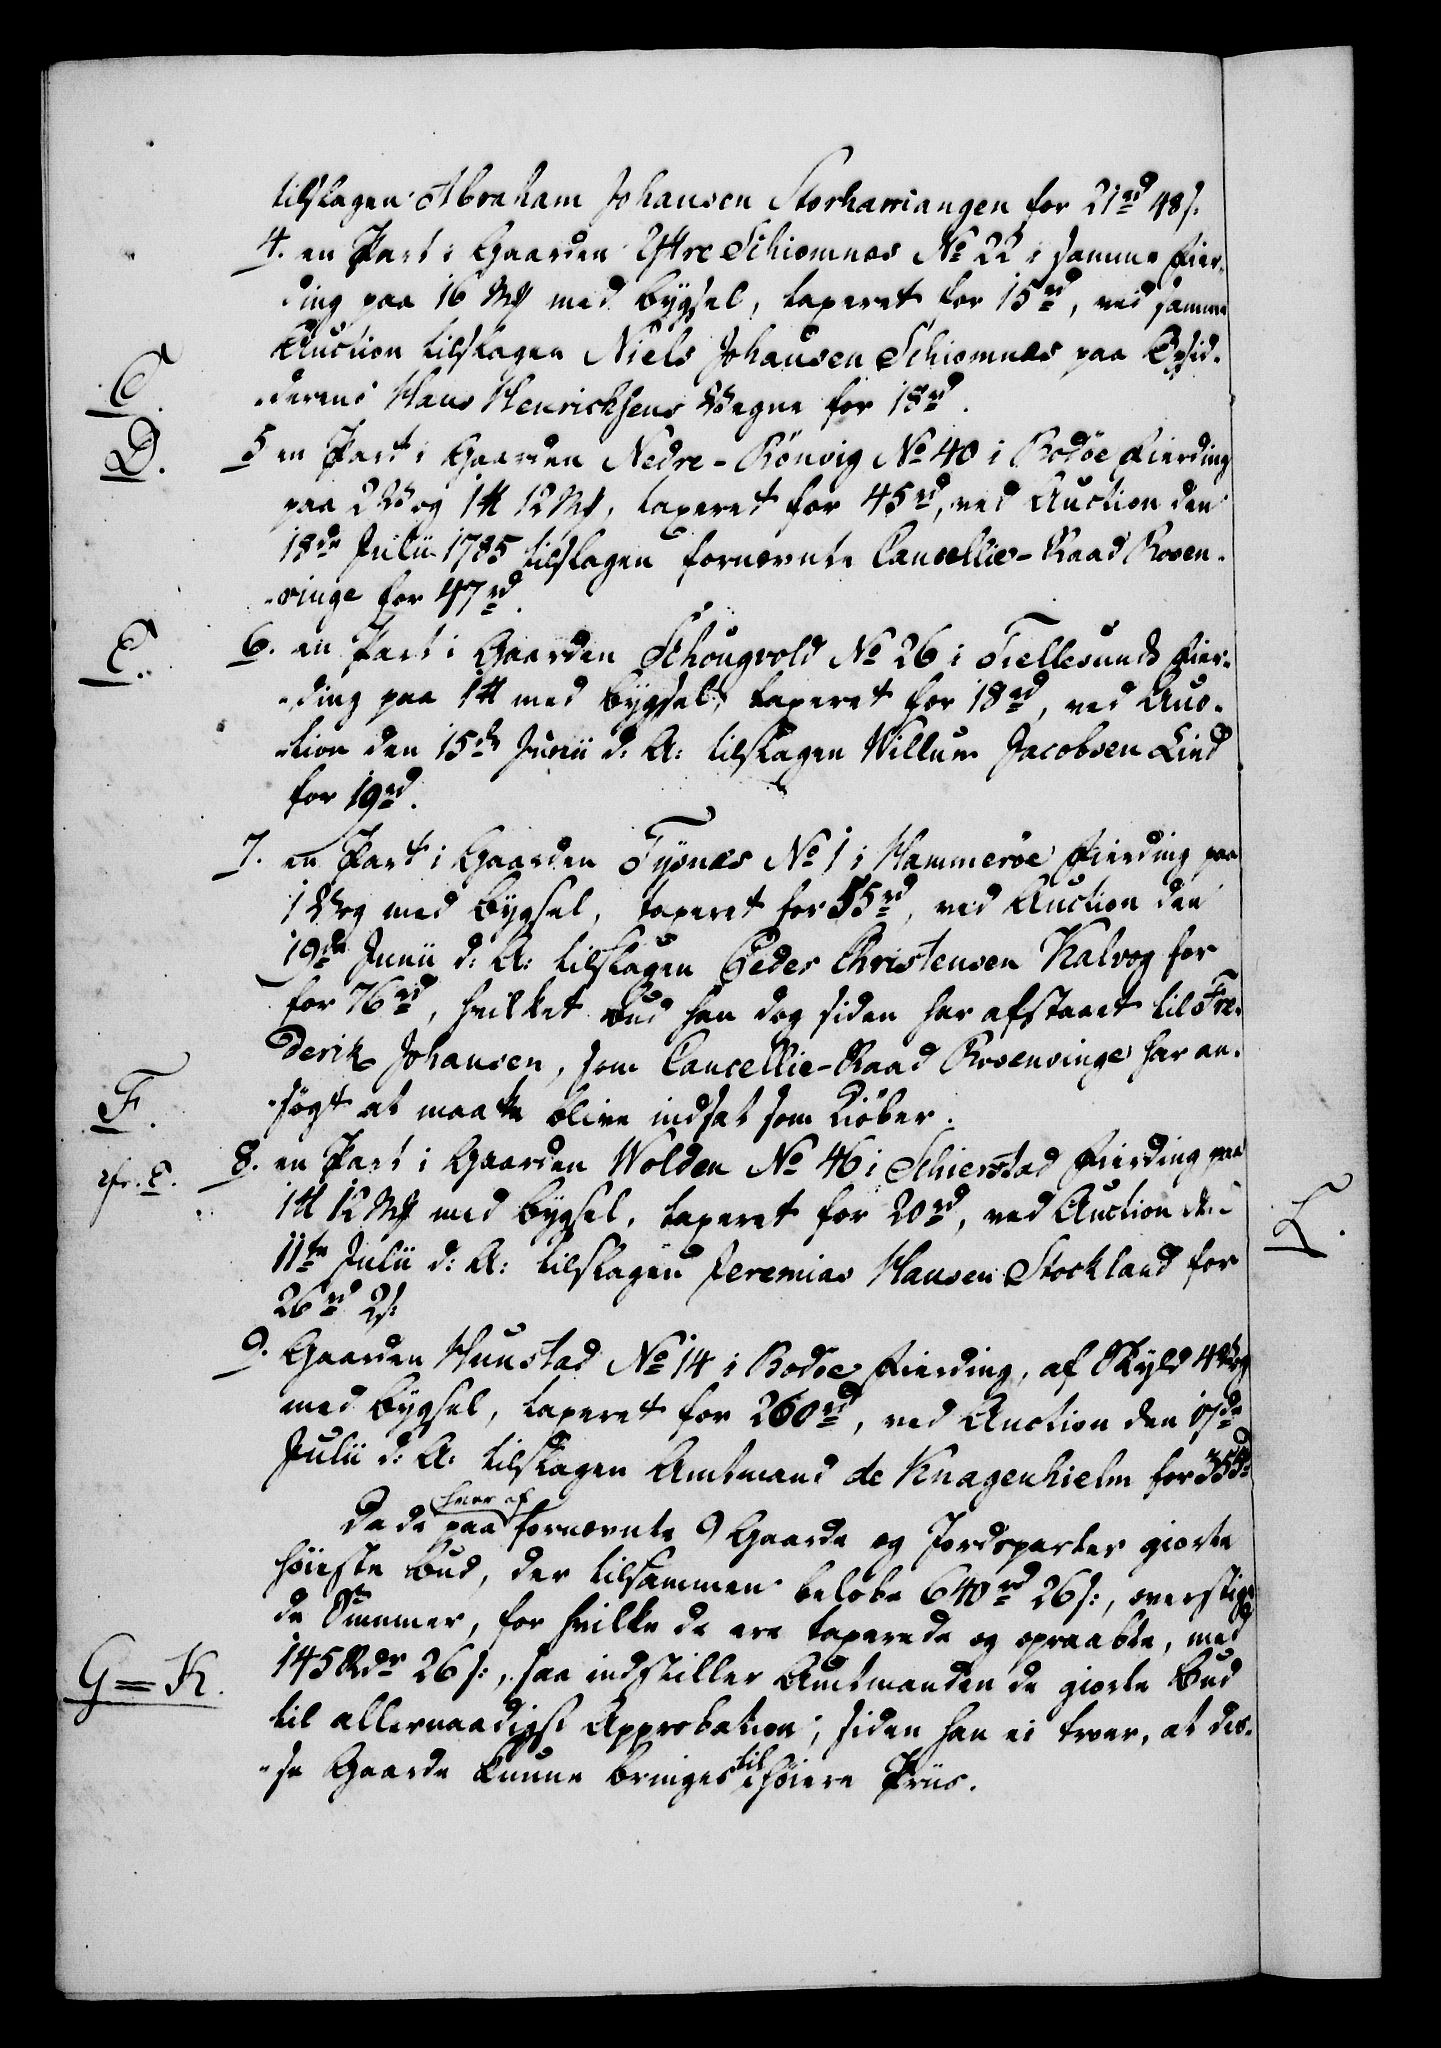 tilslagen Abraham Johansen Storharriangen for 21rd 48s.
4. en Part i Gaarden Yttre Schiomnes No 22 i samme Fier-
ding paa 16 Mk med Bygsel, taxeret for 15rd, ved samme
Auction tilslagen Niels Johansen Schiomnæs paa Opsid-
C.
-derens Hans Henrichsens Vegne for 18rd.
D.
5 en Part i Gaarden Nedre-Rönvig No 40 i Bodöe Fierding
paa 2 Vog 1 12 Mk, taxeret for 45rd, ved Auction den
18de Julii 1785 tilslagen fornævnte Cancellie-Raad Rosen-
-vinge for 47rd.
E.
6. en Part i Gaarden Schougvold No 26 i Fiellesunds Fier-
-ding paa 1 med Bygsel, taxeret for 18rd, ved Auc-
-tion den 15de Junii d: A: tilslagen Willum Jacobsen Lind
for 19rd.
7. en Part i Gaarden Tysnæs No 1 i Hammeröe Fierding paa
1 Vog med Bygsel, taxeret for 55rd, ved Auction den
19de Junii d: A: tilslagen Peder Christensen Kalvog for
for 76rd, hvilket Bud han dog siden har afstaaet til Fre-
derik Johansen, som Cancellie-Raad Rosenvinge har an-
F.
-søgt at maatte blive indsat som Kiöber.
cfr. E.
8. en Part i Gaarden Wolden No 46 i Schierstad Fierding paa
1 12 Mk med Bygsel, taxeret for 20rd, ved Auction den
L.
11te Julii d: A: tilslagen Jeremias Hansen Stockland for
26rd 2s:
9. Gaarden Hunstad No 14 i Bodöe Fierding, af Skyld 4 Vog
med Bygsel, taxeret for 260rd, ved Auction den 17de
Julii d: A: tilslagen Amtmand de Knagenhielm for 355rd
Da de paa hver af fornævnte 9 Gaarde og Jordeparter giorte
høieste Bud, der tilsammen beløbe 640rd 26s:, overstige
de Summer, for hvilke de ere taxerede og opraabte, med
G=K.
145 Rdr 26s:, saa indstiller Amtmanden de giorte Bud
til allernaadigst Approbation, siden han ei troer, at dis-
-se Gaarde kunne bringes til høiere Priis.